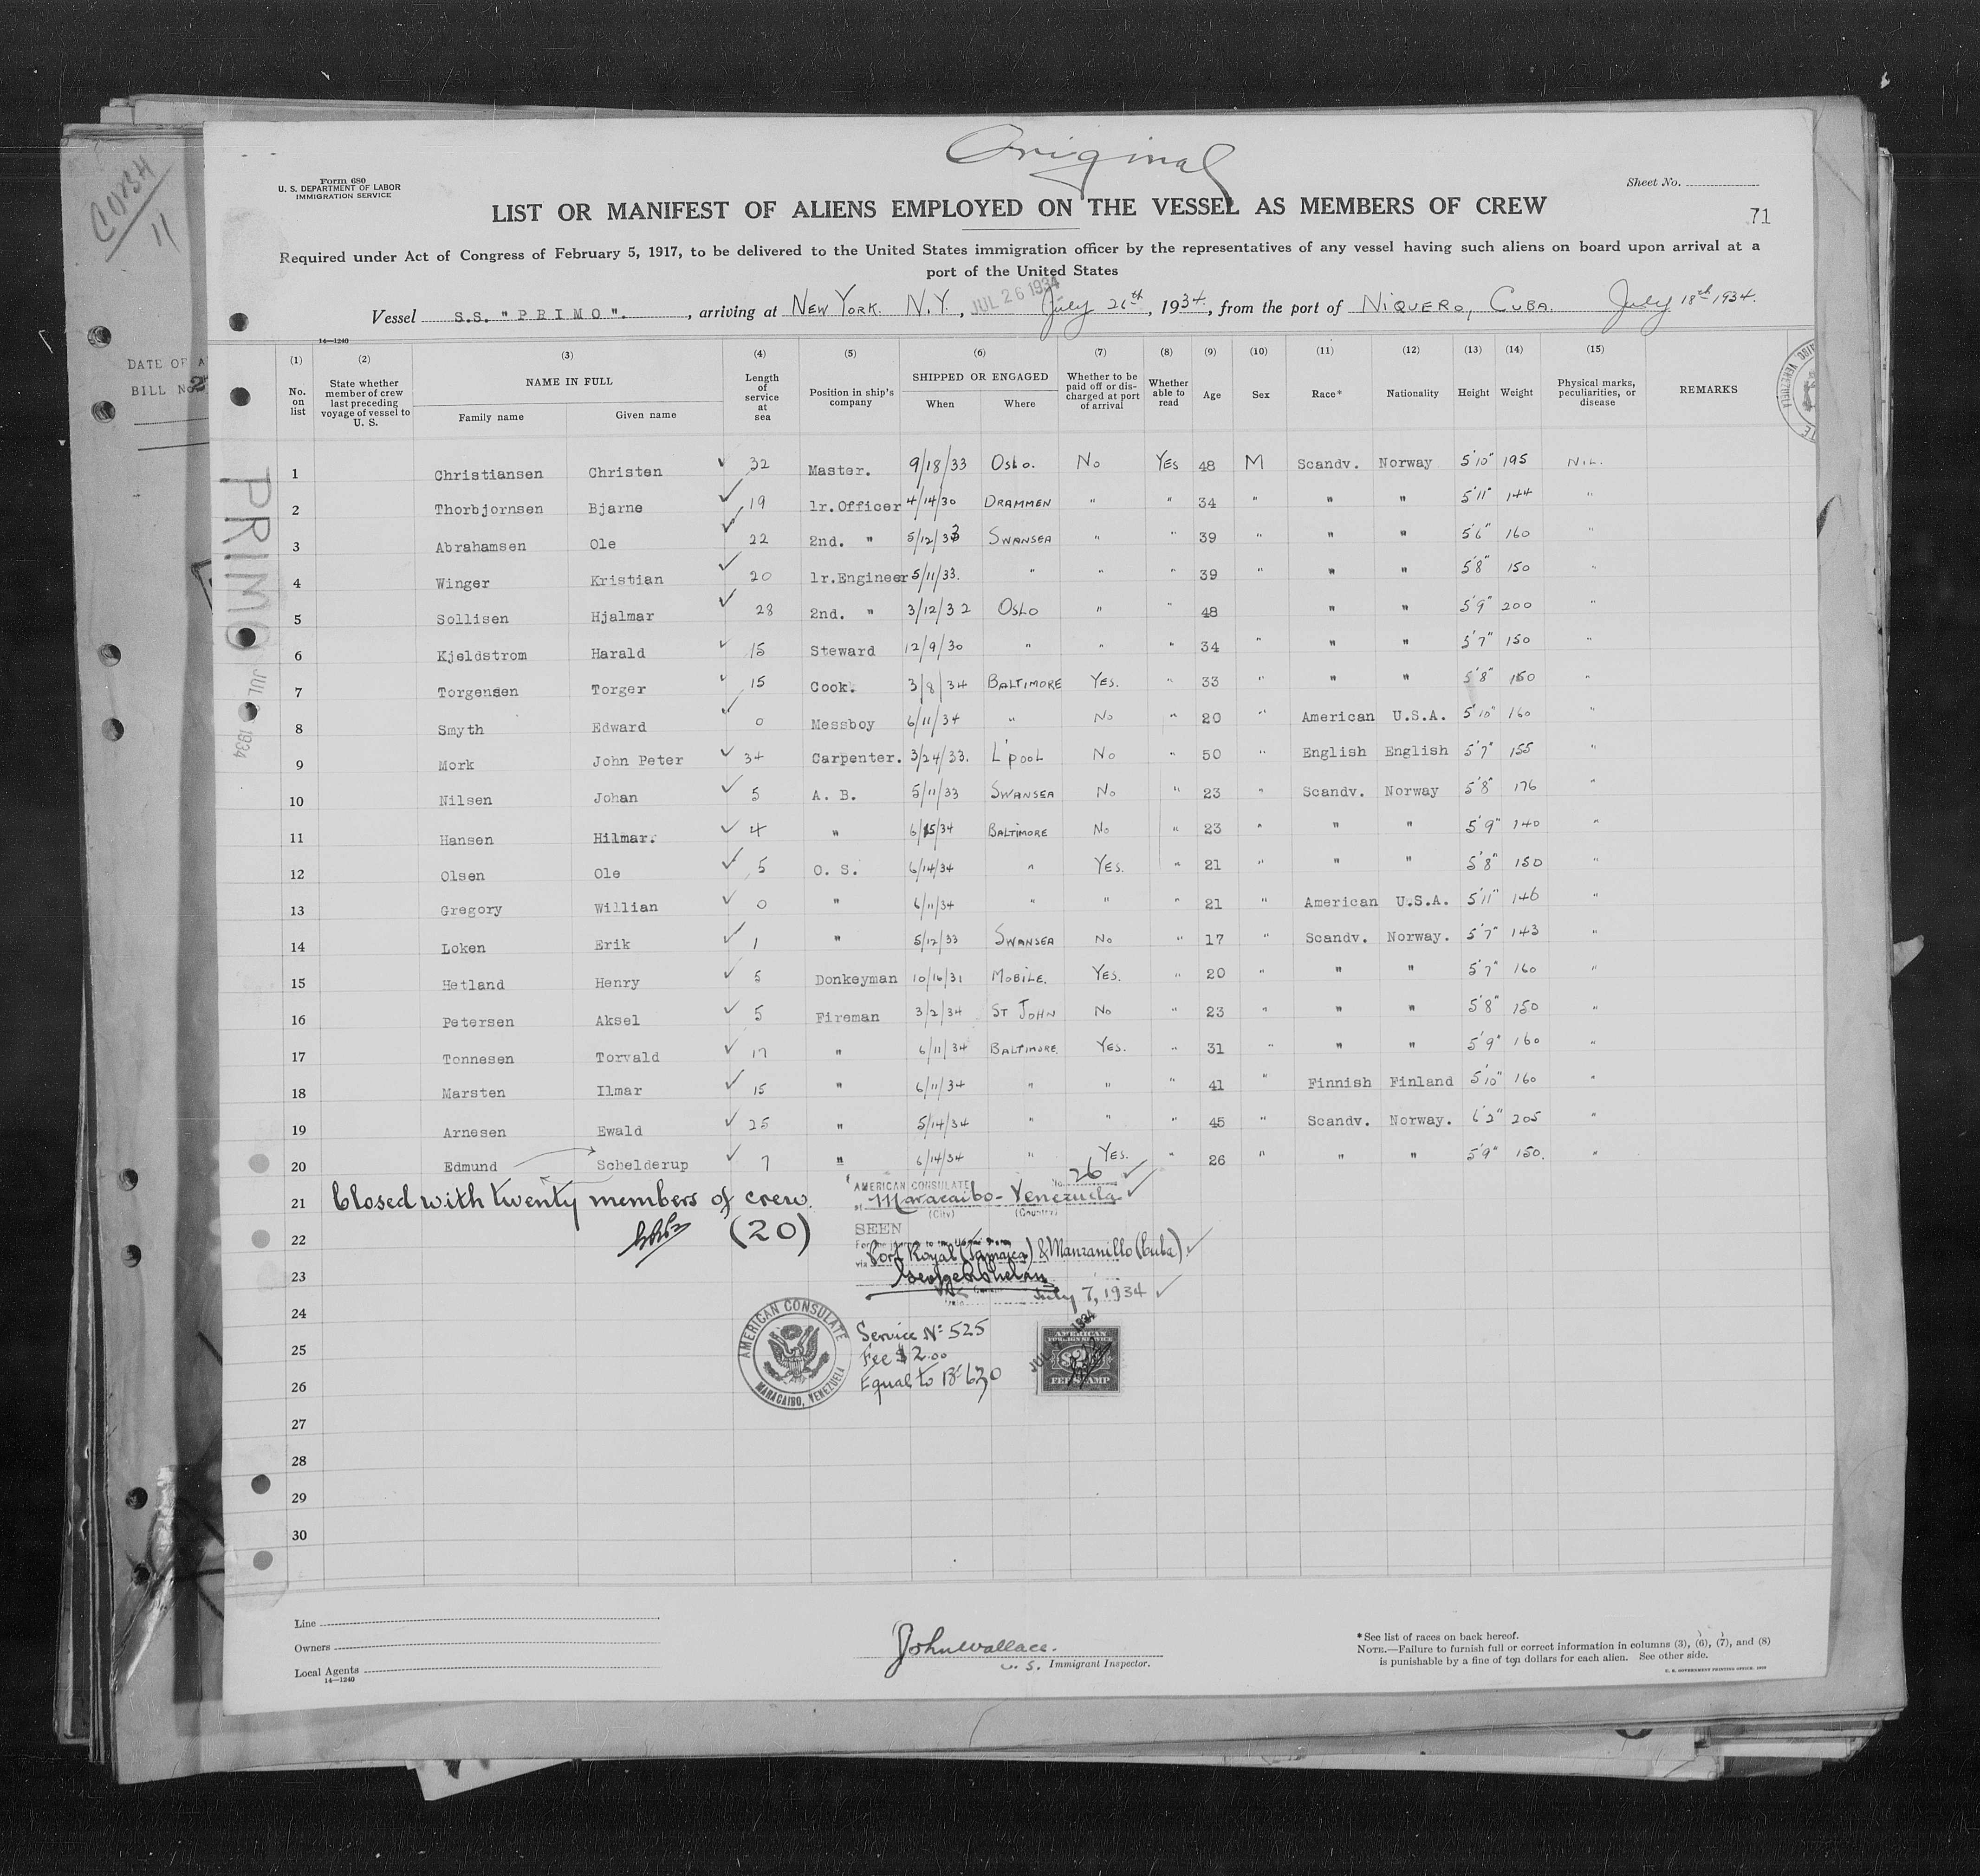 Original
Form 680
U. S. DEPARTMENT OF LABOR
IMMIGRATION SERVICE
Sheet No.
LIST OR MANIFEST OF ALIENS EMPLOYED ON THE VESSEL AS MEMBERS OF CREW
71
Required under Act of Congress of February 5, 1917, to be delivered to the United States immigration officer by the representatives of any vessel having such aliens on board upon arrival at a
port of the United States
JUL 26 1934
Vessel S.S. "PRIMO". , arriving at NEW YORK. N.Y., July 26th, 1934., from the port of NIQUERO, CUBA. July 18th 1934.
14—1240
(1) (2) (3) (4) (5) (6) (7) (8) (9) (10) (11) (12) (13) (14) (15)
No. on list State whether member of crew last preceding voyage of vessel to U. S. NAME IN FULL Family name Given name Length of service at sea Position in ship's company SHIPPED OR ENGAGED When Where Whether to be paid off or discharged at port of arrival Whether able to read Age Sex Race* Nationality Height Weight Physical marks, peculiarities, or disease REMARKS
1 Christiansen Christen 32 Master. 9/18/33 OSLO. NO YES 48 M Scandv. Norway 5'10" 195 NIL.
2 Thorbjornsen Bjarne 19 1r.Officer 4/14/30 DRAMMEN " " 34 " " " 5'11" 144 "
3 Abrahamsen Ole 22 2nd. " 5/12/33 SWANSEA " " 39 " " " 5'6" 160 "
4 Winger Kristian 20 1r.Engineer 5/11/33. " " " 39 " " " 5'8" 150 "
5 Sollisen Hjalmar 28 2nd. " 3/12/32 OSLO " " 48 " " 5'9" 200 "
6 Kjeldstrom Harald 15 Steward 12/9/30 " " " 34 " " " 5'7" 150 "
7 Torgensen Torger 15 Cook. 3/8/34 BALTIMORE YES. " 33 " " " 5'8" 150 "
8 Smyth Edward 0 Messboy 6/11/34 " NO " 20 " American U.S.A. 5'10" 160 "
9 Mork John Peter 34 Carpenter. 3/24/33. L'POOL NO " 50 " English English 5'7" 155 "
10 Nilsen Johan 5 A. B. 5/11/33 SWANSEA NO " 23 " Scandv. Norway 5'8" 176 "
11 Hansen Hilmar. 4 " 6/15/34 BALTIMORE NO " 23 " " " 5'9" 140 "
12 Olsen Ole 5 O. S. 6/14/34 " YES. " 21 " " " 5'8" 150 "
13 Gregory Willian 0 " 6/11/34 " " " 21 " American U.S.A. 5'11" 146 "
14 Loken Erik 1 " 5/12/33 SWANSEA NO " 17 " Scandv. Norway. 5'7" 143 "
15 Hetland Henry 5 Donkeyman 10/16/31 MOBILE. YES. " 20 " " " 5'7" 160 "
16 Petersen Aksel 5 Fireman 3/2/34 ST JOHN NO " 23 " " " 5'8" 150 "
17 Tonnesen Torvald 17 " 6/11/34 BALTIMORE. YES. " 31 " " " 5'9" 160 "
18 Marsten Ilmar 15 " 6/11/34 " " " 41 " Finnish Finland 5'10" 160 "
19 Arnesen Ewald 25 " 5/14/34 " " " 45 " Scandv. Norway. 6'2" 205 "
20 Edmund Schelderup 7 " 6/14/34 " YES. " 26 " " " 5'9" 150. "
21 Closed with twenty members of crew.
22 (20)
23
24
25
26
27
28
29
30
No. 26
AMERICAN CONSULATE
at Maracaibo - Venezuela
(City) (Country)
SEEN
via Port Royal (Jamaica) & Manzanillo (Cuba)
July 7, 1934
AMERICAN CONSULATE
MARACAIBO, VENEZUELA
Service No 525
Fee $ 2.00
Equal to Bs 6.30
AMERICAN
FOREIGN SERVICE
$2
FEE STAMP
JUL 1934
PRIMO
JUL 1934
DATE OF A
BILL No.
11
Line
Owners
Local Agents
14—1240
John Wallace.
U. S. Immigrant Inspector.
* See list of races on back hereof.
NOTE.—Failure to furnish full or correct information in columns (3), (6), (7), and (8)
is punishable by a fine of ten dollars for each alien. See other side.